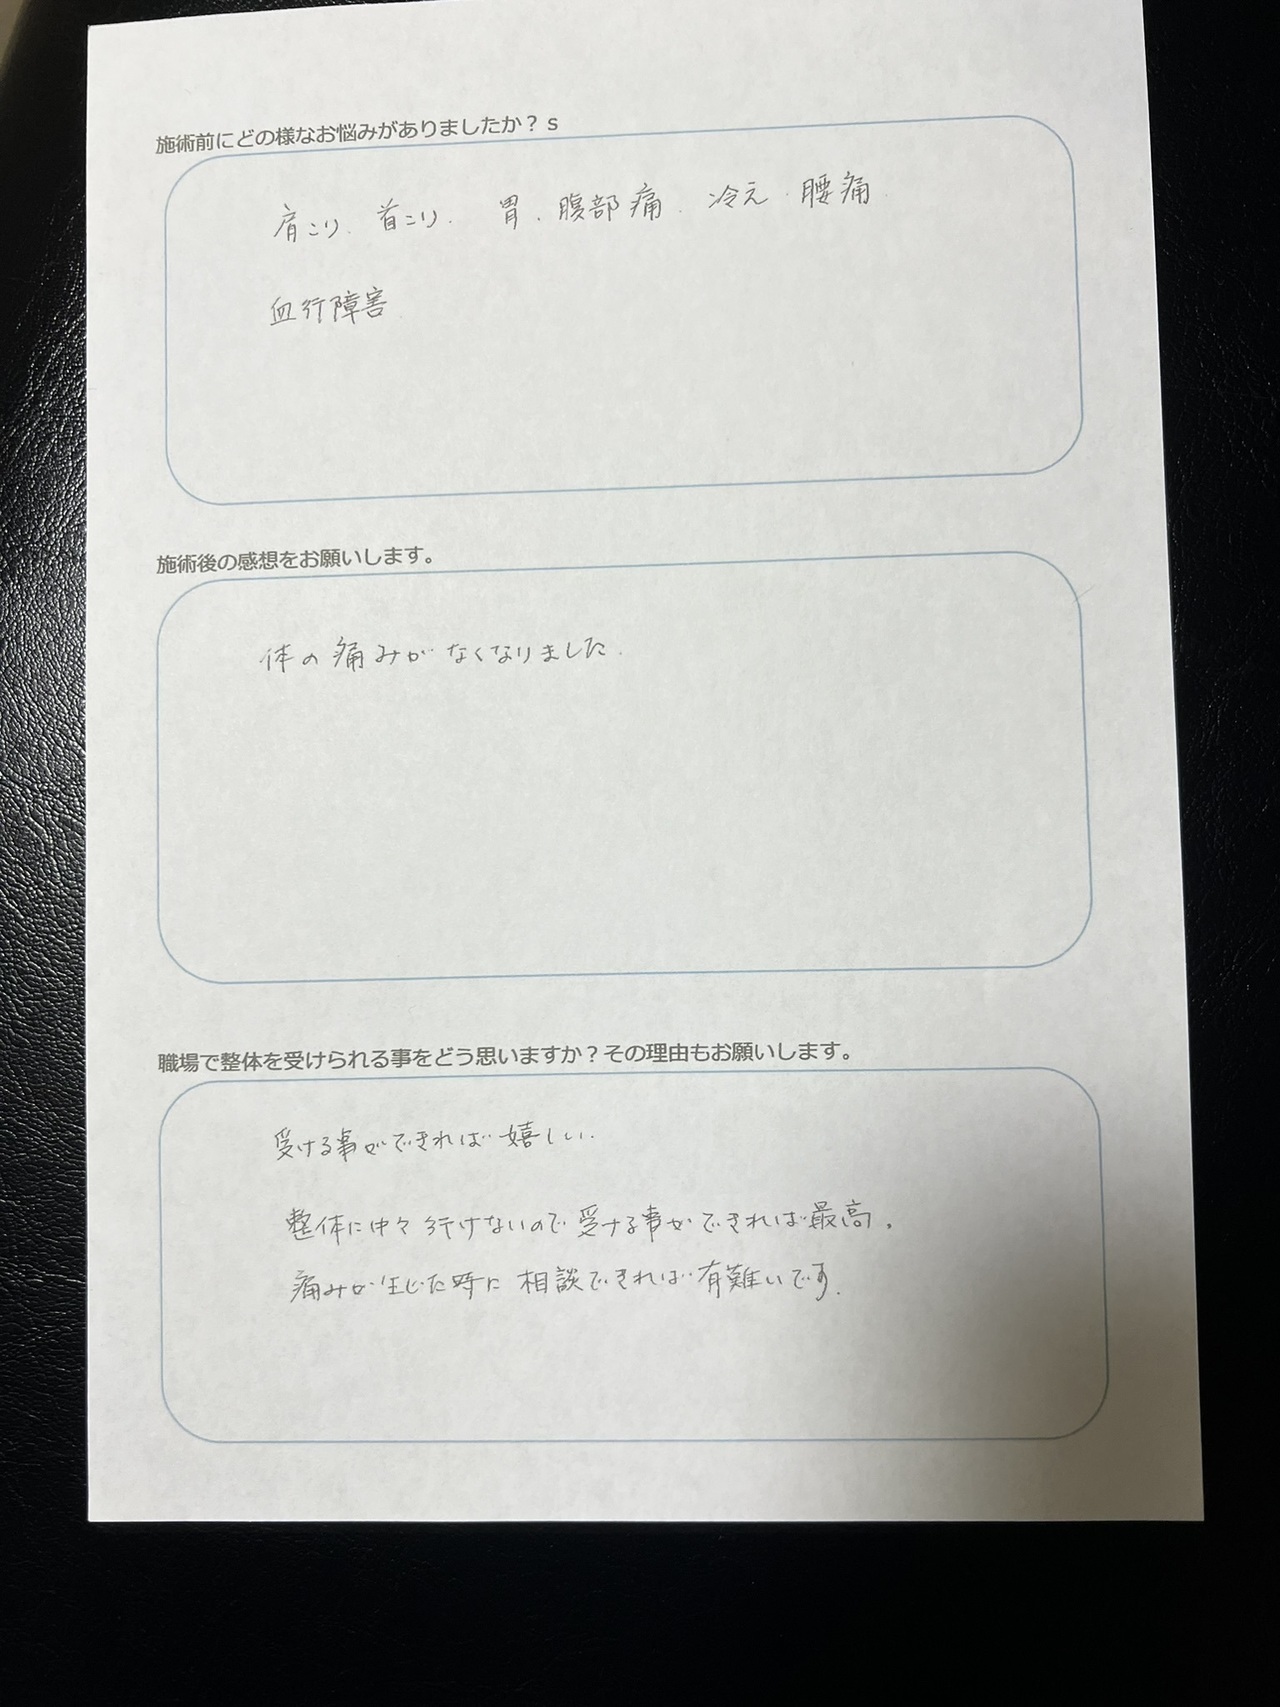 施術前にどの様なお悩みがありましたか？s
肩こり、首こり、胃、腹部痛、冷え、腰痛、
血行障害
施術後の感想をお願いします。
体の痛みがなくなりました。
職場で整体を受けられる事をどう思いますか？その理由もお願いします。
受ける事ができれば嬉しい。
整体に中々行けないので受ける事ができれば最高。
痛みが生じた時に相談できれば有難いです。